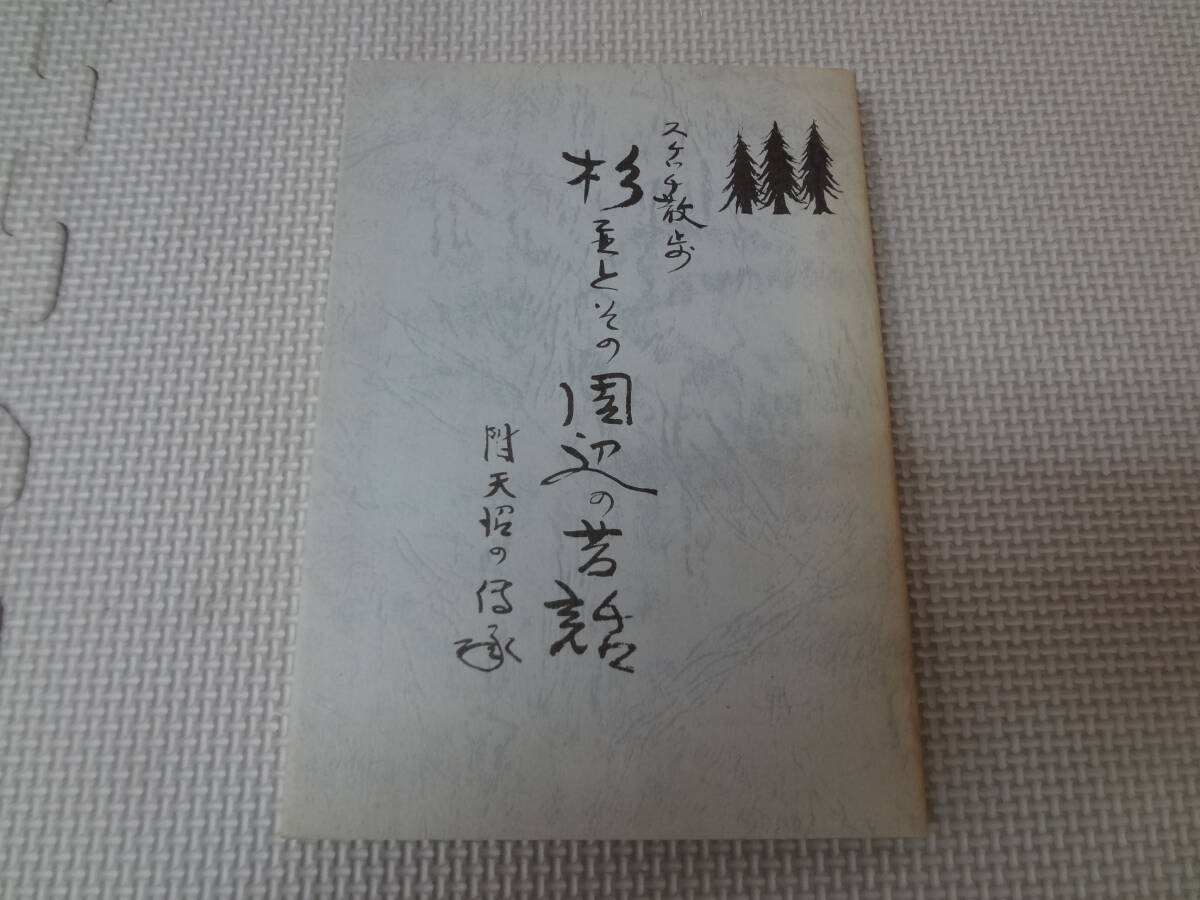 スケッチ散歩
杉並とその周辺の昔話
附天沼の傳承